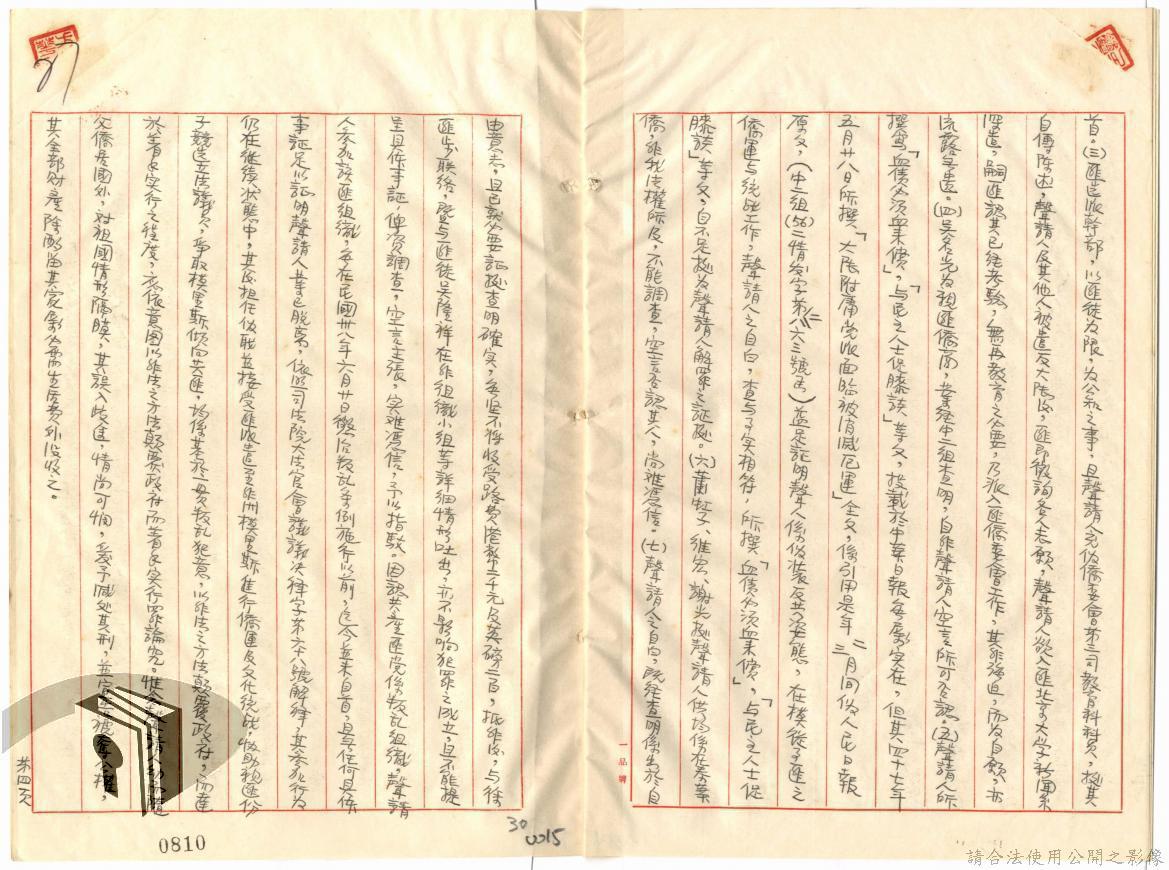 首。(三)匪邑派幹部,以匪徒為限,為公知之事,且聲請人充偽僑委會第三司教育科科員,據其
自傳陳述,聲請人及其他人被遣反大陸後,匪即徵詢各人志願,聲請人欲入匪北京大學新聞系
深造,嗣匪認其已經考驗,無再教育之必要,乃派入匪僑委會工作,其非強迫,而為自願,亦
流露無遺。(四)吳名光為親匪僑商,業經中二組查明,自非聲請人空言所可否認。(五)聲請人所
撰寫「血債必須血來償」,「與民主人士促膝談」等文,披載於中華日報無影實在,但其四十七年
五月廿八日所撰「大陸附庸黨派面臨被消滅厄運」全文,係引用是年二三月間偽人民日報
原文,(中二組(56)二情字第二六三號函)益足證明聲請人係偽裝反共姿態,在模從事匪之
僑運與統战工作,聲請人之自白,查與事實相符,所撰「血債必須血來償」,「與民主人士促
膝談」等文,自不足據為聲請人解罪之証據。(六)蕭虹子、維宏、謝光據聲請人供均係在泰華
僑,非我法權所及,不能調查,空言否認其人,尚難憑信。(七)聲請人之自白,既經查明係出於自
由意志,且已就必要証據查明確實,無坚不將收受路費港幣二千元及英磅一百,抵非後,与
匪步聯絡,既与匪徒吳隆祥在非組織小組等詳細情形吐出,亦不影响犯罪之成立,且不能提
呈具体事証,俾資調查,空言主張,實難憑信,予以指駁。因認共產匪党係叛乱組織,聲請
人參加該匪組織,無在民國卅八年六月廿日懲治叛乱条例施行以前,迄今並未自首,且無任何具体
事証足以証明聲請人等已脱离,依照司法院大法官會議議決釋字第六十八號解釋,其參加行為
仍在继續狀態中,其後担任偽職並接受匪派遣至非洲模里斯進行僑運及文化統战,協助親匪份
子競選立法議員,爭取模里斯傾向共匪,均係基於一貫叛乱犯意,以非法之方法顛覆政府,而達
於着手实行之程度,应依意图以非法之方法顛覆政府而着手实行罪論究。惟念聲請人幼而隨
父僑居國外,對祖國情形隔膜,其誤入歧途,情尚可憫,爰予減处其刑,並宣告褫奪公權,
其全部財產除酌留其家屬必需生活費外沒收之。
第四頁
一品牌
0810
30
0015
請合法使用公開之影像